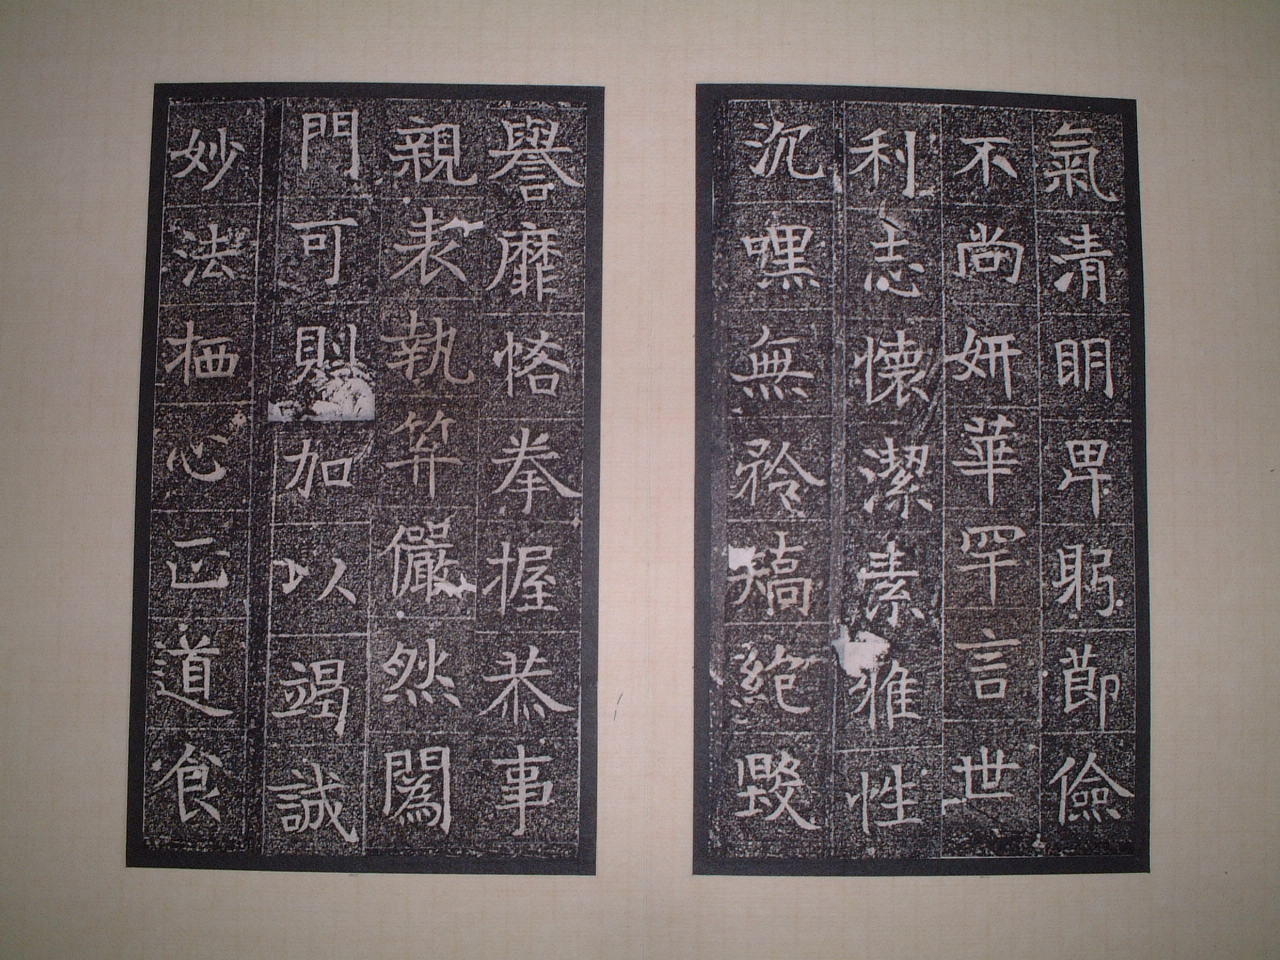 氣清明卑躬節儉
不尚妍華罕言世
利志懷潔素雅性
沉嘿無矜矯絶毀
譽靡悋拳握恭事
親表執笄儼然閫
門可則加以竭誠
妙法栖心正道食